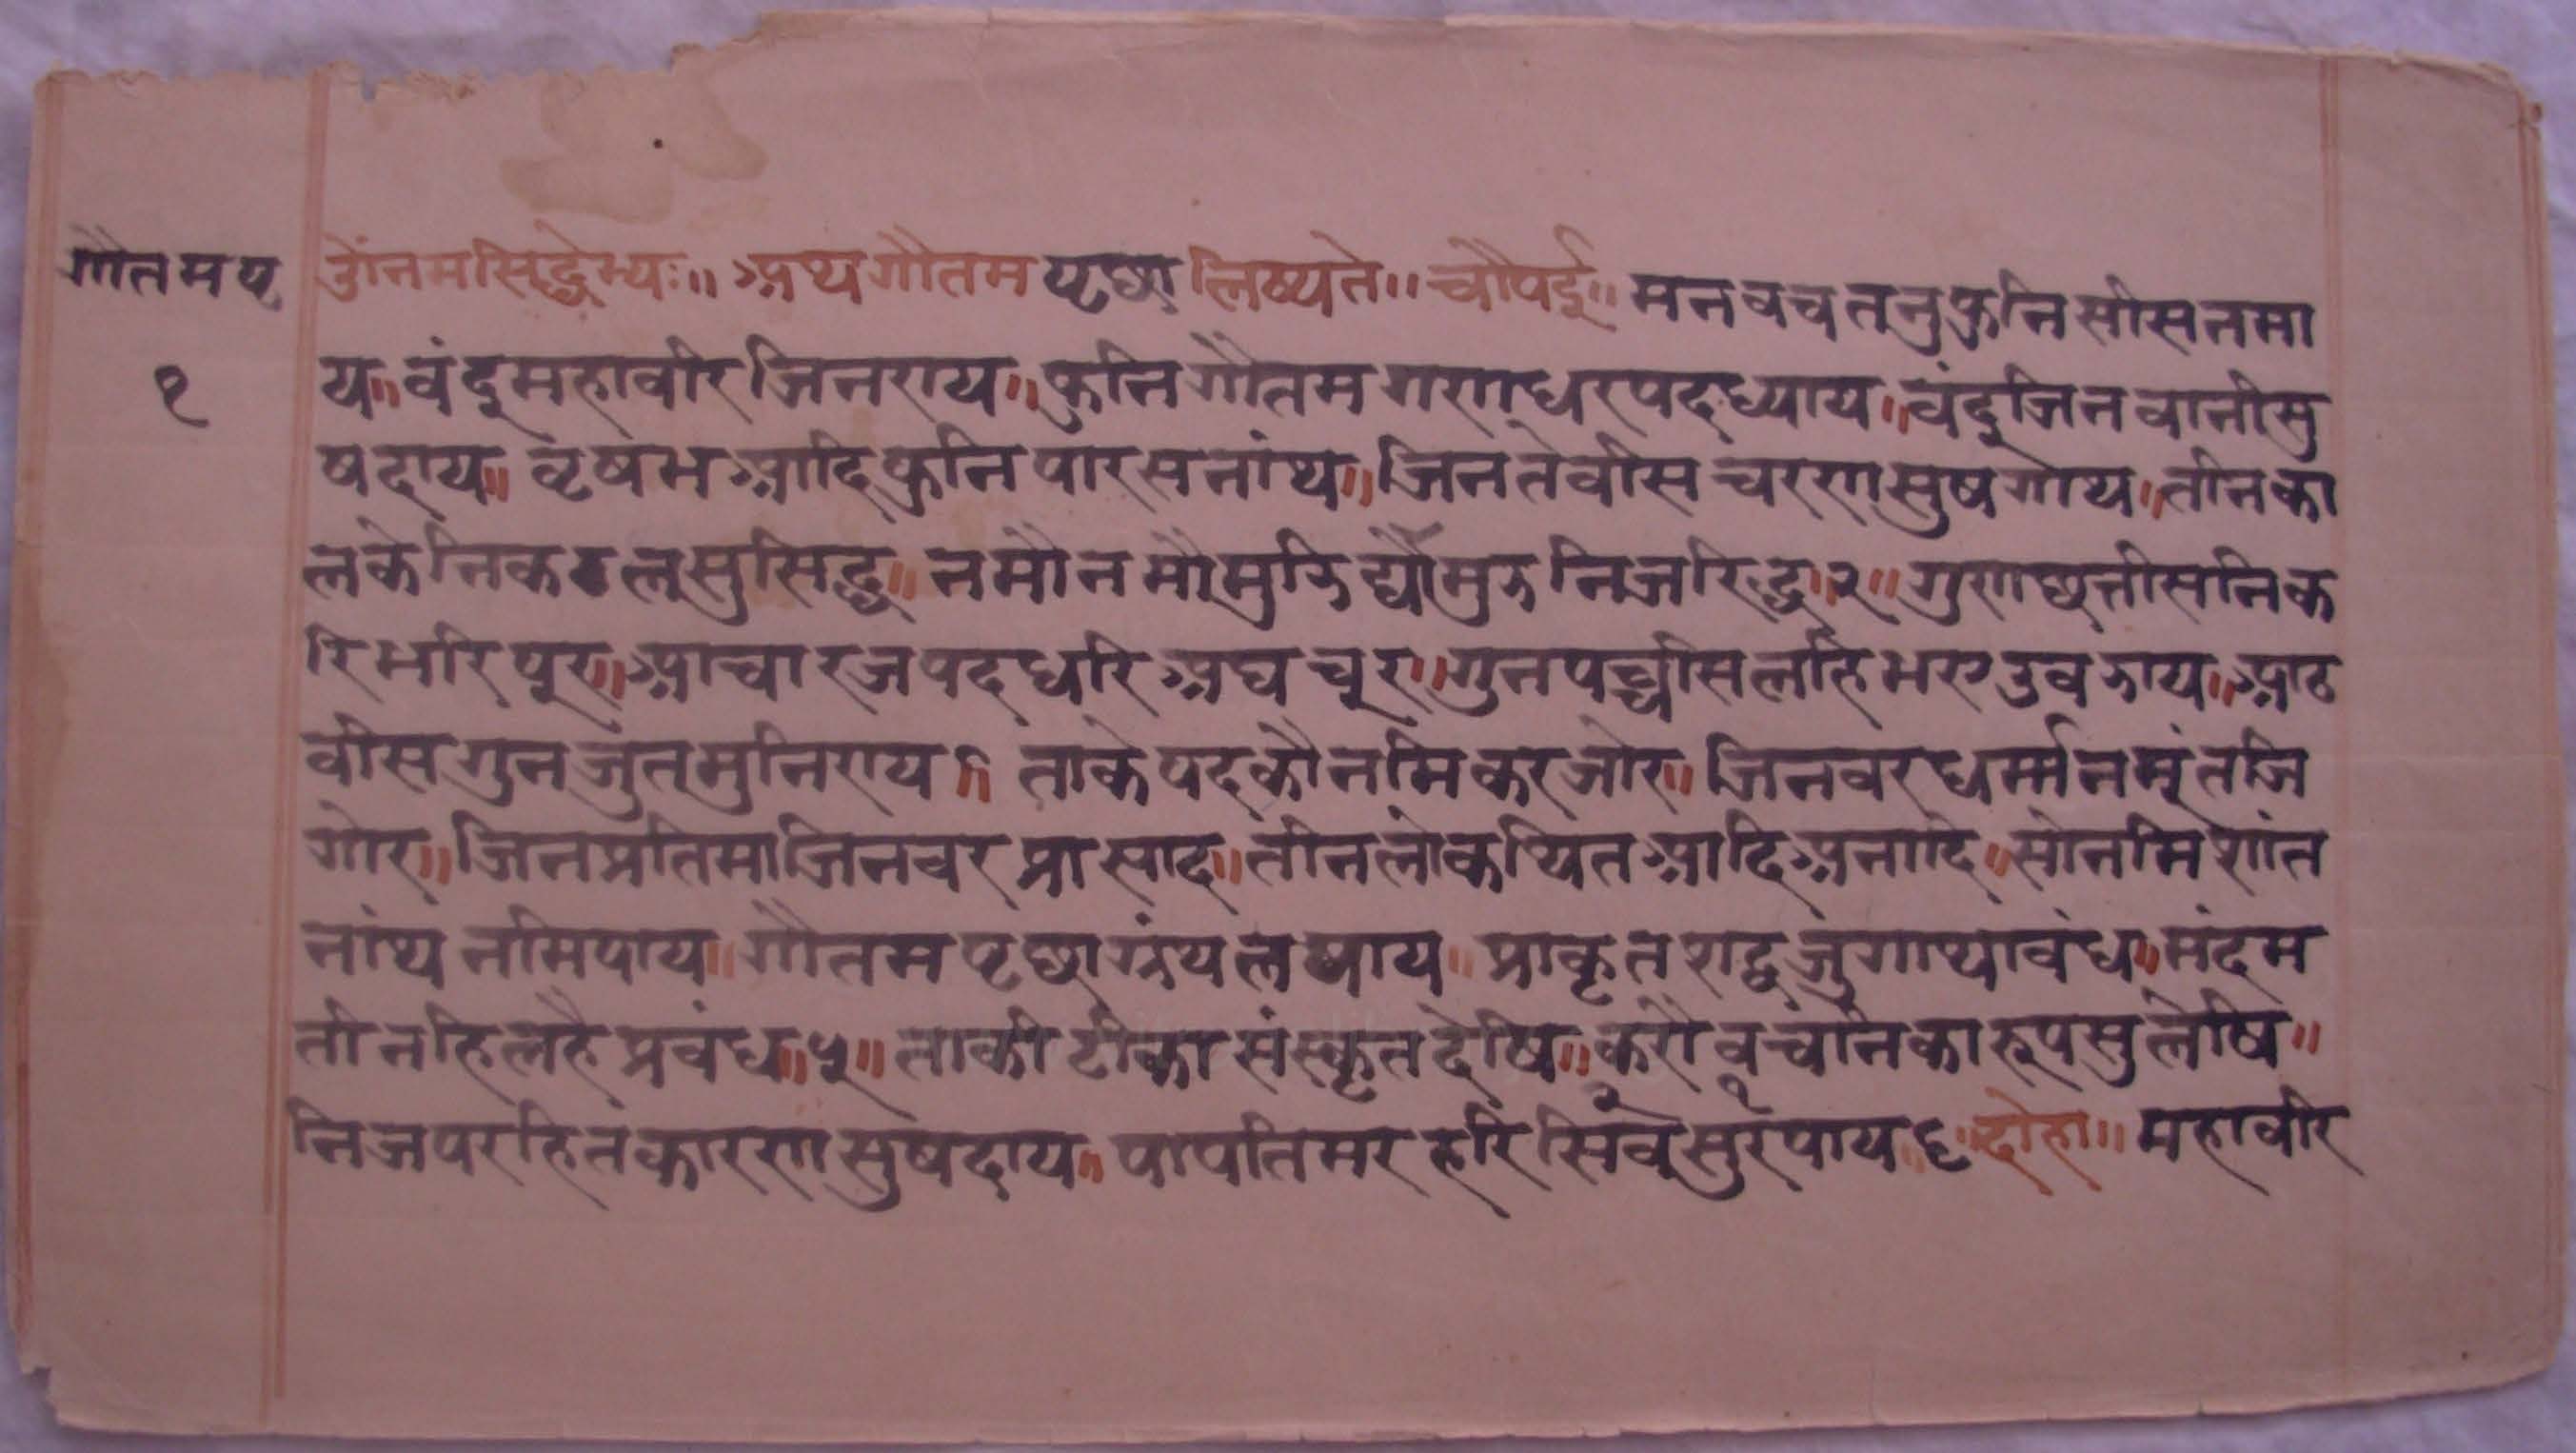 गौतम पृ
१
उोंनमसिद्धेभ्यः॥ अथ गौतम पृछा लिष्यते॥ चौपई॥ मन वच तनु फुनि सीस नमा
य॥ वंदू महावीर जिनराय॥ फुनि गौतम गणधर पद ध्याय॥ वंदू जिन वानी सु
षदाय॥ वृषभ आदि फुनि पारसनांथ॥ जिन तेवीस चरण सुष गाय॥ तीन का
ल के निकल सुसिद्ध॥ नमौ नमौ मुझि द्यौ मुझ निज रिद्ध॥२॥ गुण छत्तीसनि क
रि भरिपूर॥ आचारज पद धारि अघ चूर॥ गुन पच्चीस लहि भए उवझाय॥ आठ
वीस गुन जुत मुनिराय॥ ताके पद कौ नमि कर जोर॥ जिनवर धर्म्म नमूं तजि
गोर॥ जिन प्रतिमा जिनवर प्रासाद॥ तीन लोक थित आदि अनादि॥ सो नमि शांत
नांथ नमि पाय॥ गौतम पृछा ग्रंथ लषाय॥ प्राकृत शद्ब जु गाथा वंध॥ मंदम
ती नहि लहै प्रवंध॥५॥ ताकी टीका संस्कृत देषि॥ करौ वचनिका रूप सु लेषि॥
२ १
निज पर हित कारण सुषदाय॥ पाप तिमर हरि सिव सुर पाय॥६॥ दोहा॥ महावीर